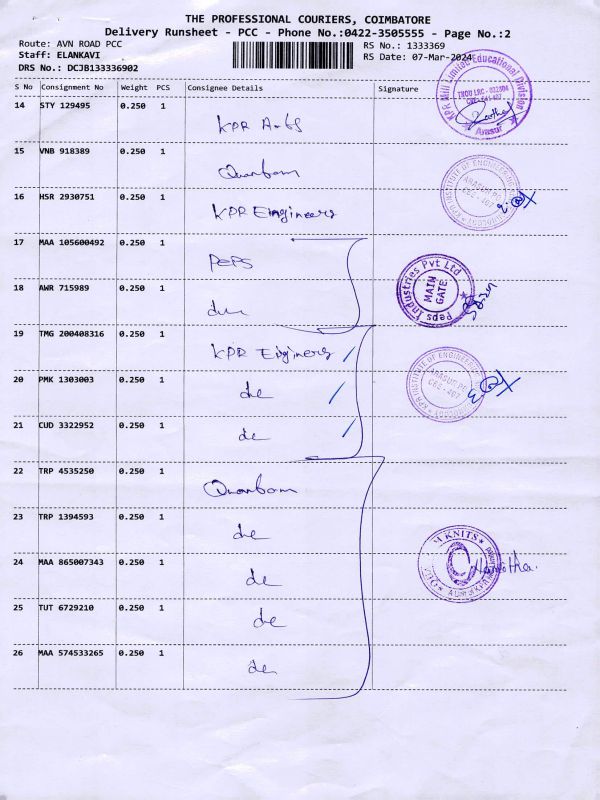 THE PROFESSIONAL COURIERS, COIMBATORE
Delivery Runsheet - PCC - Phone No.:0422-3505555 - Page No.:2
Route: AVN ROAD PCC RS No.: 1333369
Staff: ELANKAVI RS Date: 07-Mar-2024
DRS No.: DCJB133336902
S No Consignment No Weight PCS Consignee Details Signature
14 STY 129495 0.250 1 KPR Arts
15 VNB 918389 0.250 1
16 HSR 2930751 0.250 1 KPR Engineers
17 MAA 105600492 0.250 1 PEPS
18 AWR 715989 0.250 1
19 TMG 200408316 0.250 1 KPR Engineers
20 PMK 1303003 0.250 1
21 CUD 3322952 0.250 1
22 TRP 4535250 0.250 1
23 TRP 1394593 0.250 1
24 MAA 865007343 0.250 1
25 TUT 6729210 0.250 1
26 MAA 574533265 0.250 1
KPR Mill Limited Educational Division
Arasur
KPR INSTITUTE OF ENGINEERING
ARASUR PO
CBE - 407
Peps Industries Pvt Ltd
MAIN
GATE
KPR INSTITUTE OF ENGINEERING
ARASUR PO
CBE - 407
KNITS